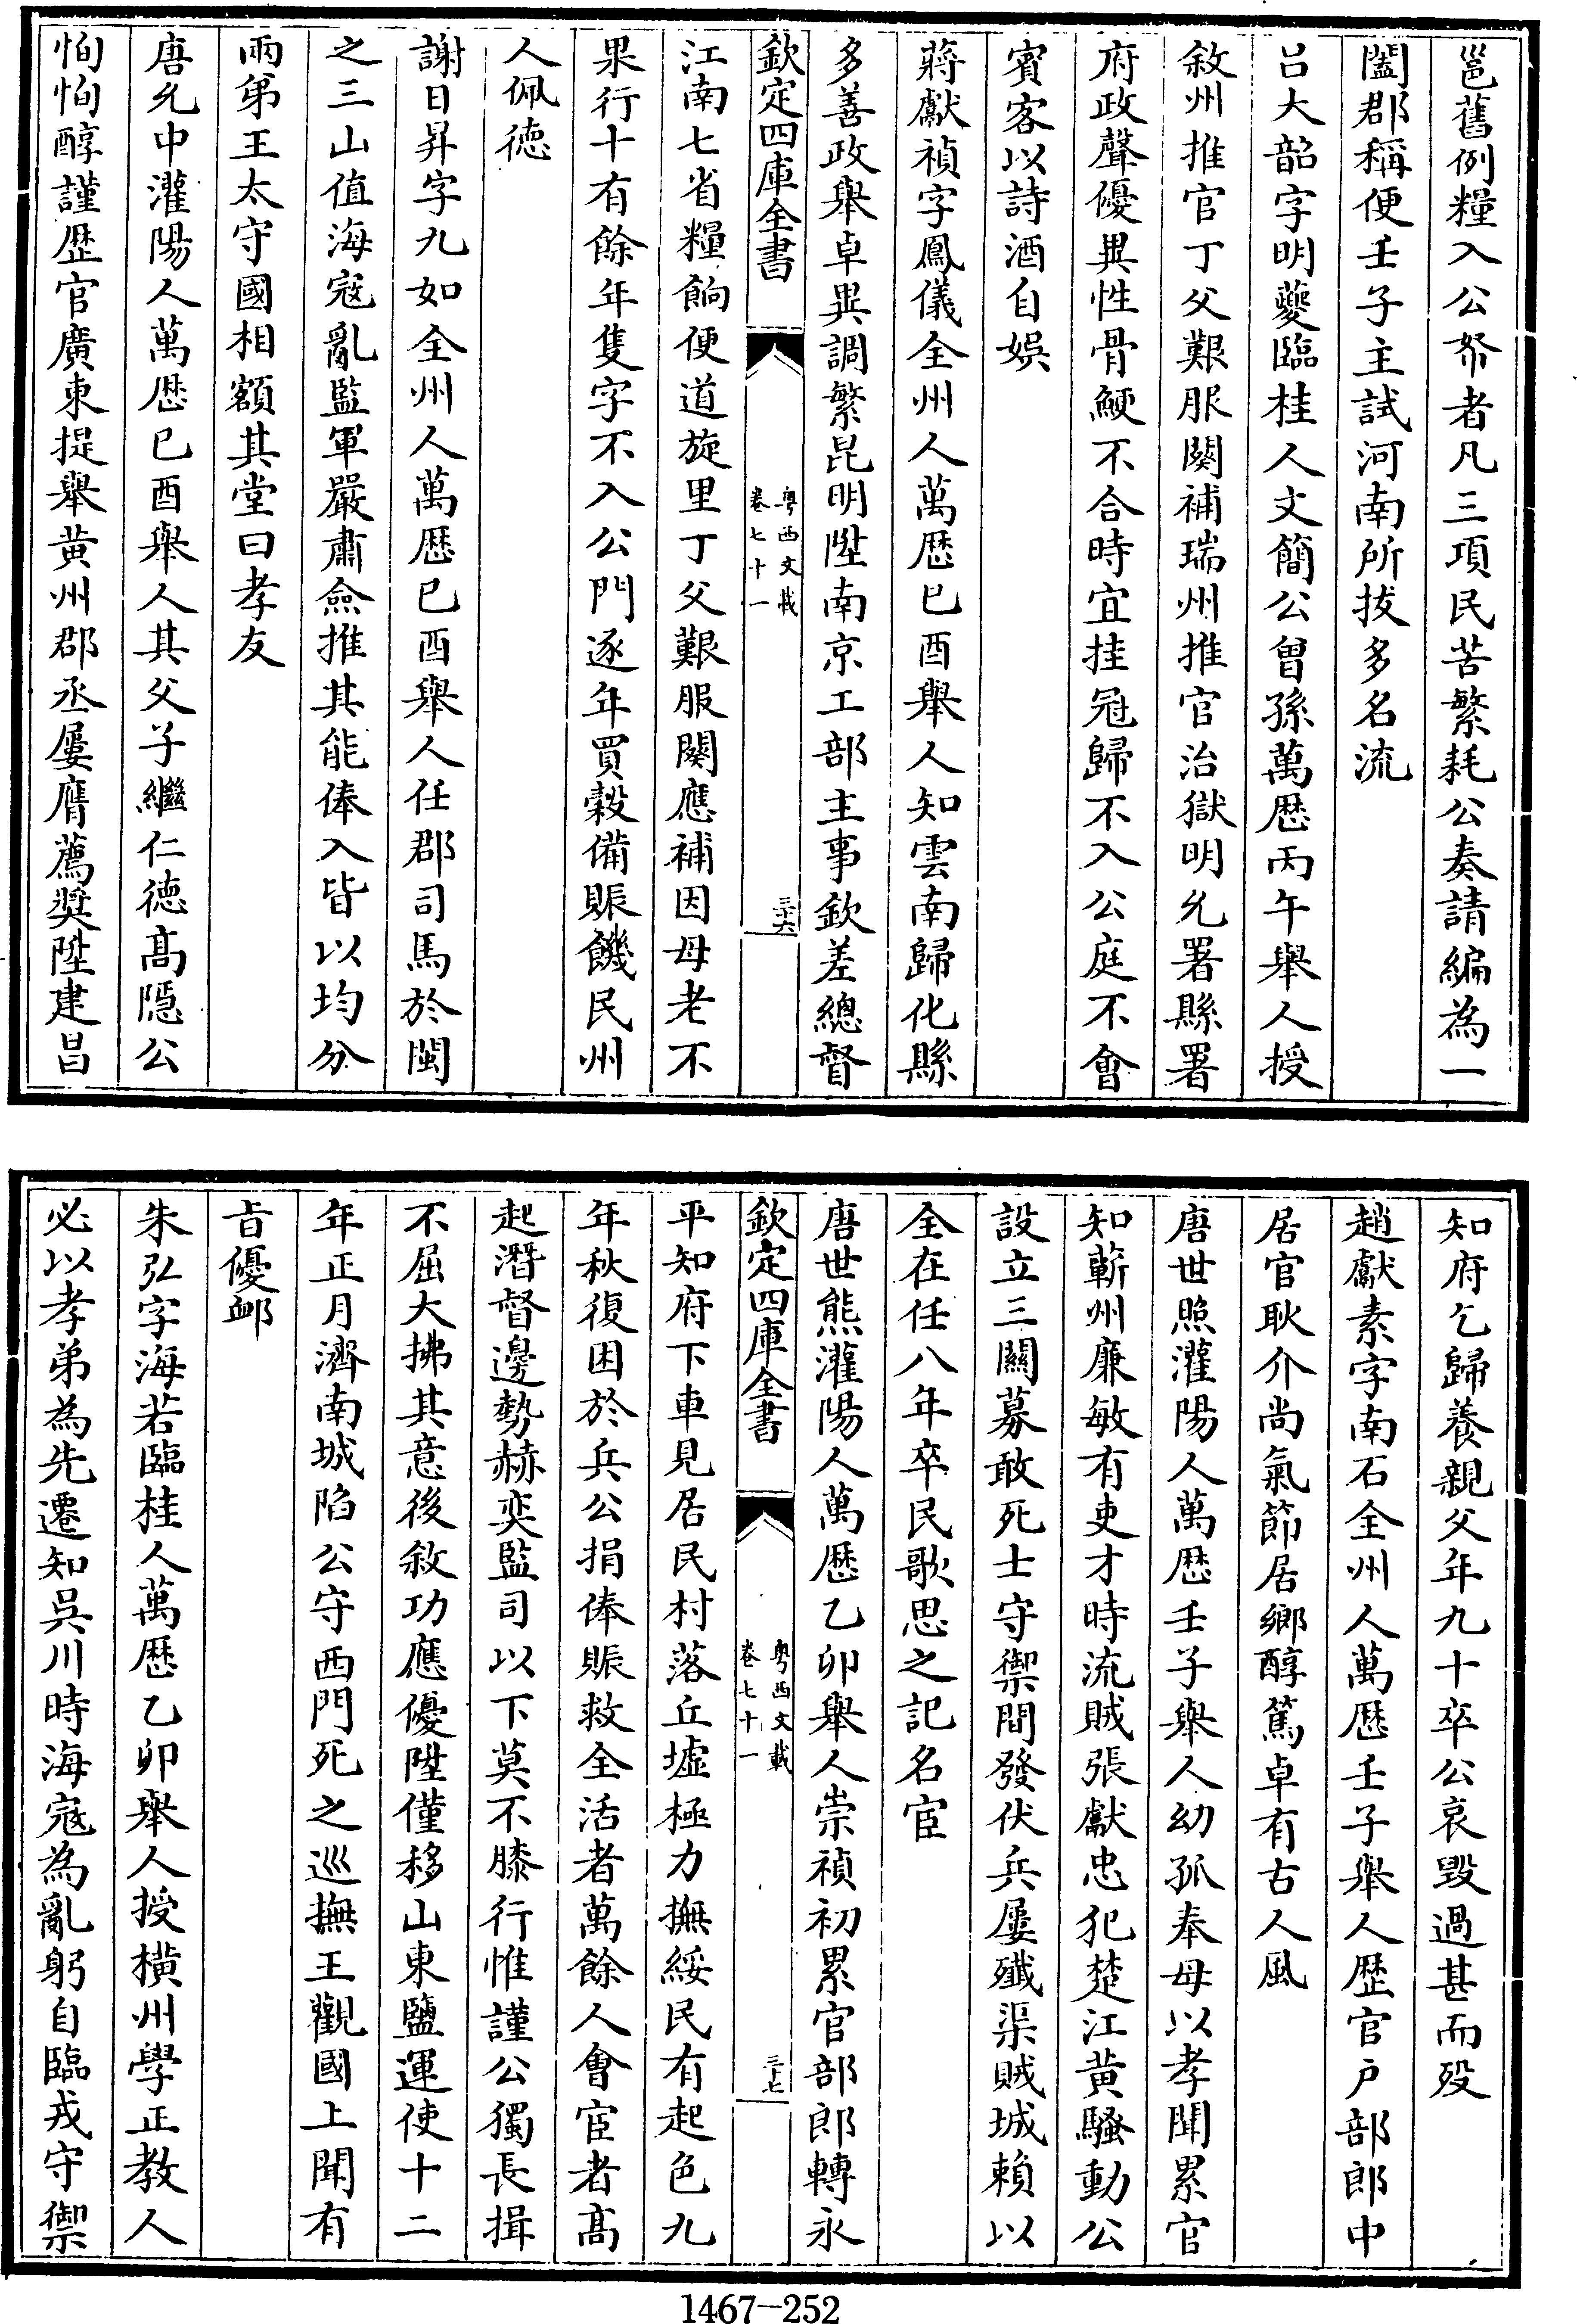 邕舊例糧入公帑者凡三項民苦繁耗公奏請編為一
闔郡稱便壬子主試河南所拔多名流
吕大韶字明夔臨桂人文簡公曾孫萬歴丙午舉人授
敘州推官丁父艱服闋補瑞州推官治獄明允署縣署
府政聲優異性骨鯁不合時宜挂冠歸不入公庭不會
賓客以詩酒自娯
蔣獻禎字鳳儀全州人萬歴己酉舉人知雲南歸化縣
多善政舉卓異調繁昆明陞南京工部主事欽差總督
欽定四庫全書
粤西文載
卷七十一
三十六
江南七省糧餉便道旋里丁父艱服闋應補因母老不
果行十有餘年隻字不入公門逐年買榖備賑饑民州
人佩徳
謝日昇字九如全州人萬歴己酉舉人任郡司馬於閩
之三山值海寇亂監軍嚴肅僉推其能俸入皆以均分
兩弟王太守國相額其堂曰孝友
唐允中灌陽人萬歴己酉舉人其父子繼仁徳髙隠公
恂恂醇謹歴官廣東提舉黄州郡丞屢膺薦奨陞建昌
知府乞歸養親父年九十卒公哀毁過甚而殁
趙獻素字南石全州人萬歴壬子舉人歴官户部郎中
居官耿介尚氣節居鄉醇篤卓有古人風
唐世照灌陽人萬歴壬子舉人幼孤奉母以孝聞累官
知蘄州廉敏有吏才時流賊張獻忠犯楚江黄騷動公
設立三關募敢死士守禦間發伏兵屢殲渠賊城賴以
全在任八年卒民歌思之記名宦
唐世熊灌陽人萬歴乙卯舉人崇禎初累官部郎轉永
欽定四庫全書
粤西文載
卷七十一
三十七
平知府下車見居民村落丘墟極力撫綏民有起色九
年秋復困於兵公捐俸賑救全活者萬餘人會宦者髙
起潛督邊勢赫奕監司以下莫不膝行惟謹公獨長揖
不屈大拂其意後敘功應優陞僅移山東鹽運使十二
年正月濟南城陷公守西門死之巡撫王觀國上聞有
㫖優䘏
朱弘字海若臨桂人萬歴乙卯舉人授横州學正教人
必以孝弟為先遷知吳川時海寇為亂躬自臨戎守禦
1467—252